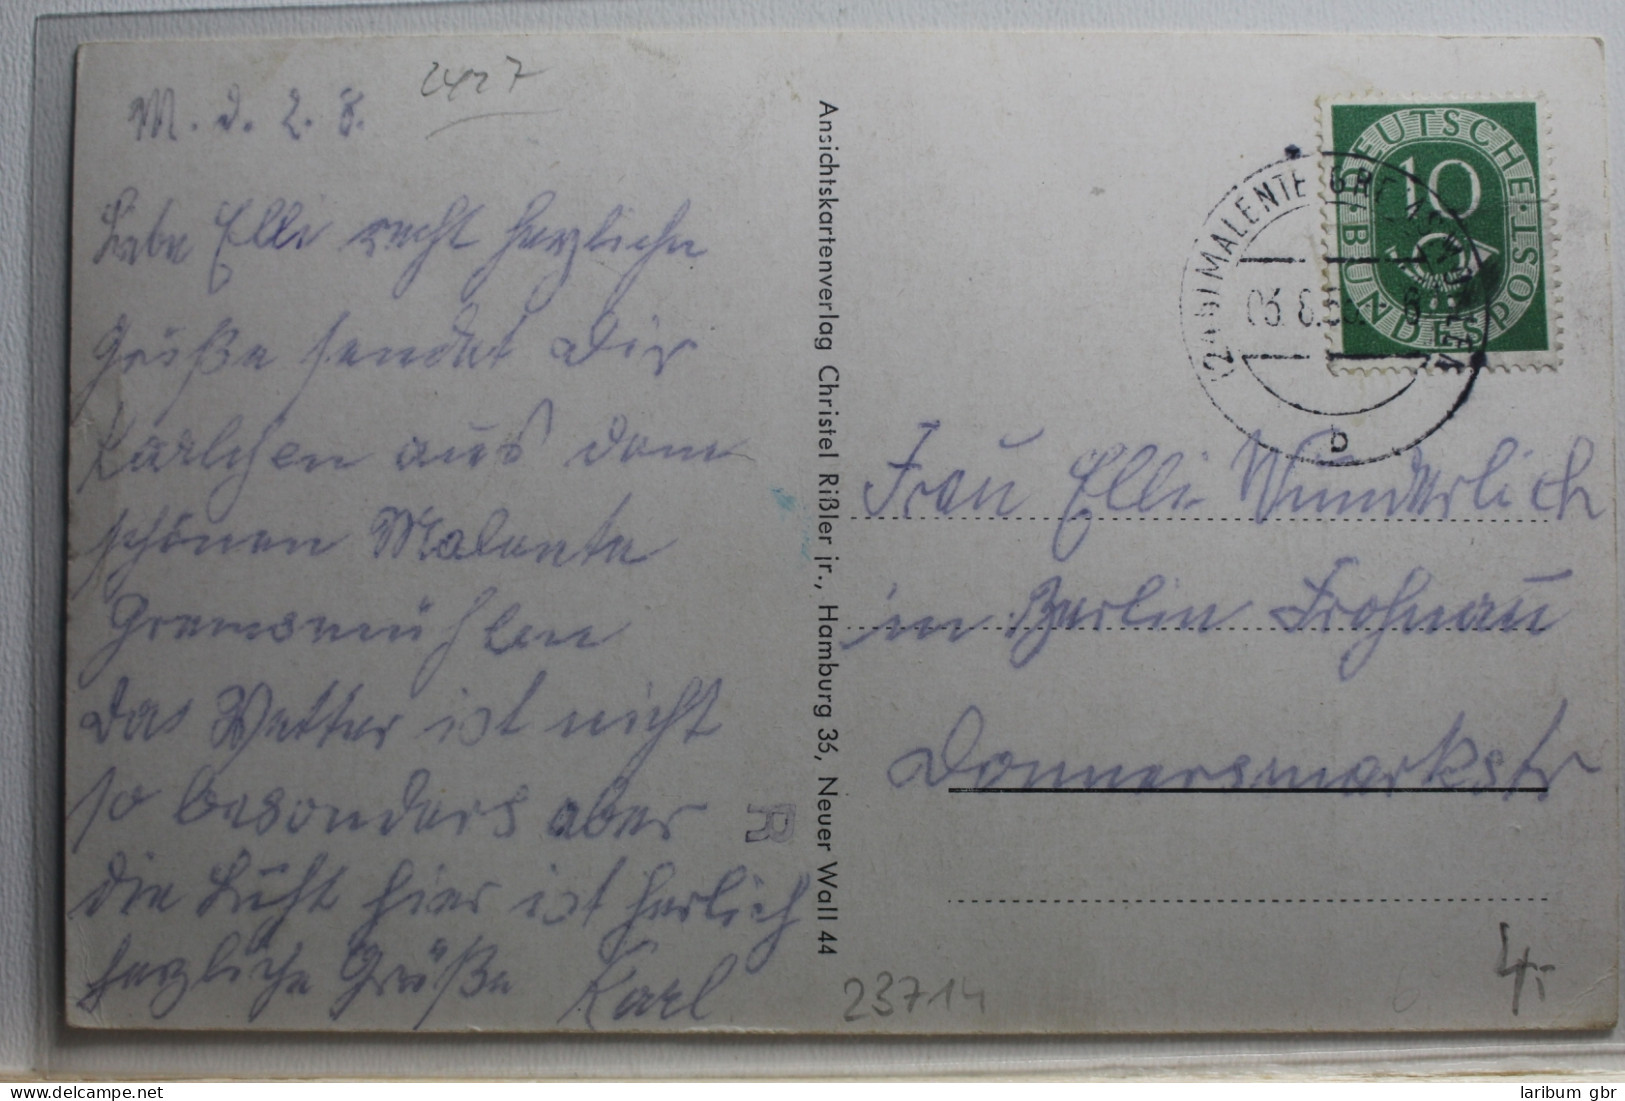 M. d. 2. 8.
2427
Liebe Elli recht herzliche
Grüße sendet Dir
Karlchen aus dem
schönen Malente
Gremsmühlen
Das Wetter ist nicht
so besonders aber
die Luft hier ist herlich
herzliche Grüße Karl
R
Ansichtskartenverlag Christel Rißler jr., Hamburg 36, Neuer Wall 44
DEUTSCHE · BUNDESPOST
10
MALENTE GREMSMÜHLEN
b
Frau Elli Wunderlich
in Berlin Frohnau
Donnersmarkstr
23714
4,-
laribum gbr
delcampe.net